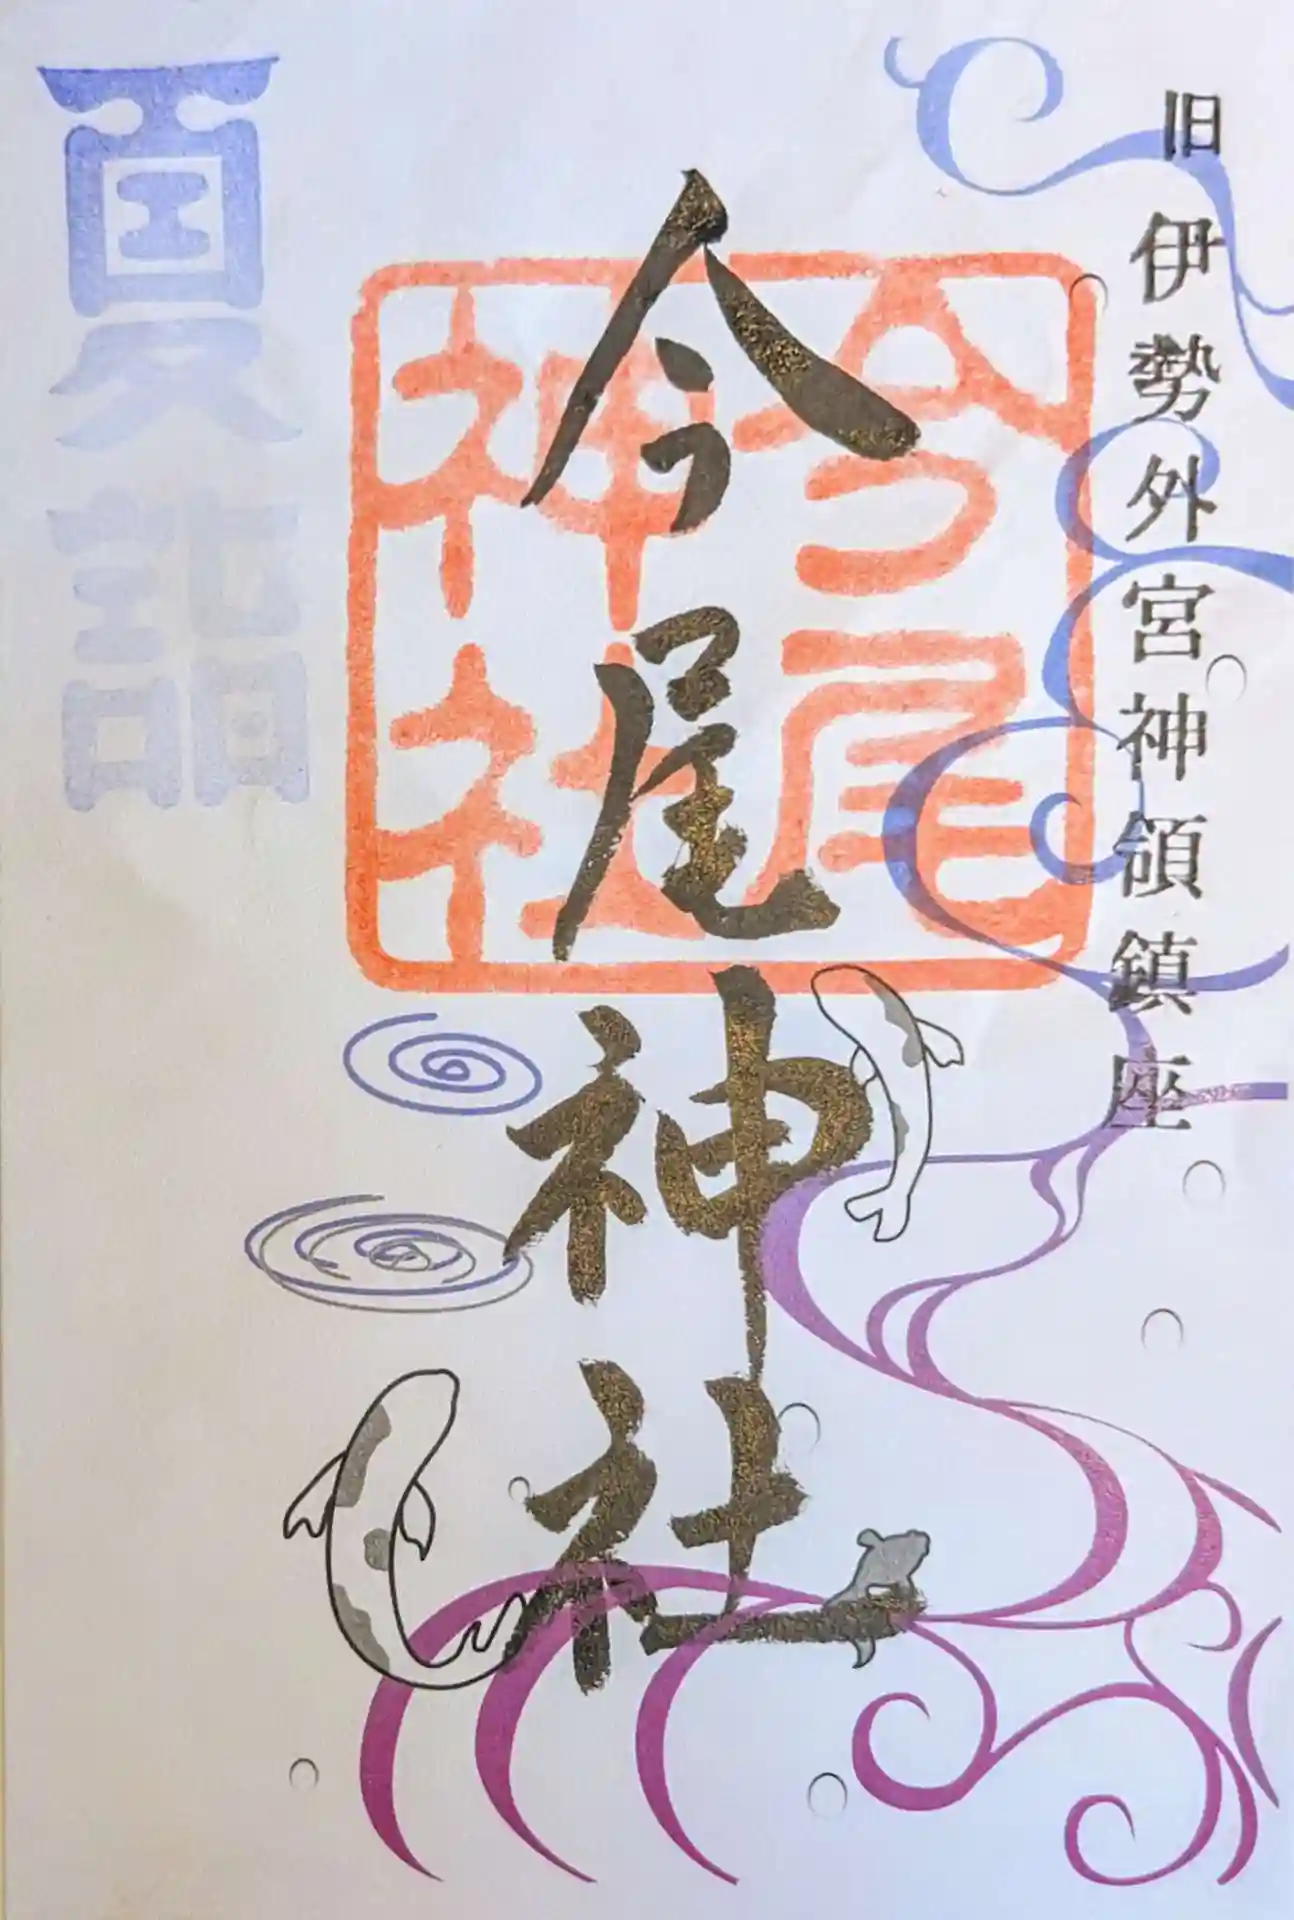 旧 伊勢外宮神領鎮座
今尾
神社
今尾神社
夏詣